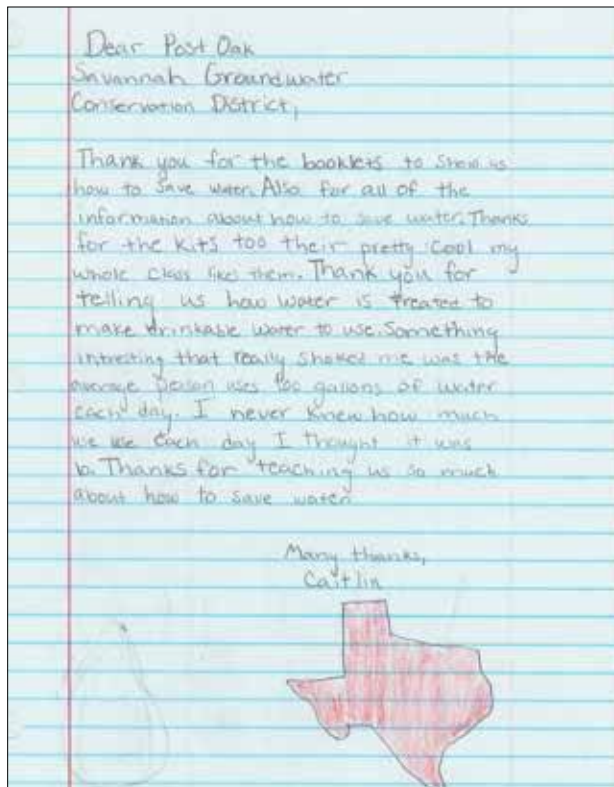 Dear Post Oak
Savannah Groundwater
Conservation District,
Thank you for the booklets to show us
how to save water. Also for all of the
information about how to save water. Thanks
for the kits too their pretty cool my
whole class likes them. Thank you for
telling us how water is treated to
make drinkable water to use. Something
intresting that really shoked me was the
average person uses 100 gallons of water
each day. I never knew how much
we use each day I thought it was
Thanks for teaching us so much
about how to save water
Many thanks,
Caitlin